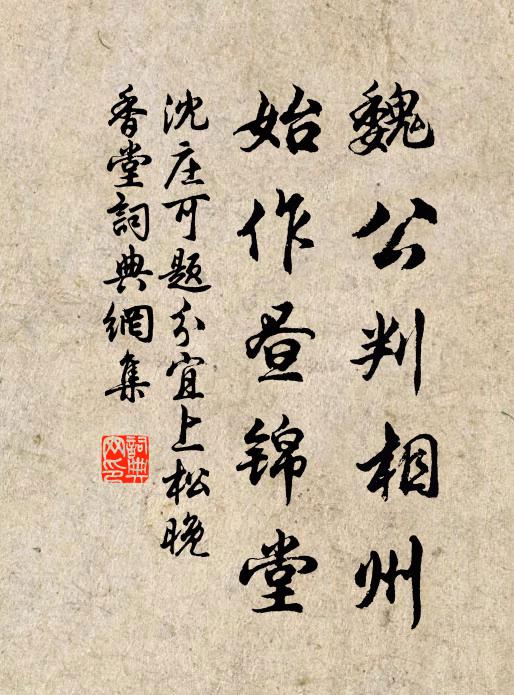 魏公判相州
始作昼锦堂
沈庄可题分宜上松晚
香堂詞典網集
詞典网印